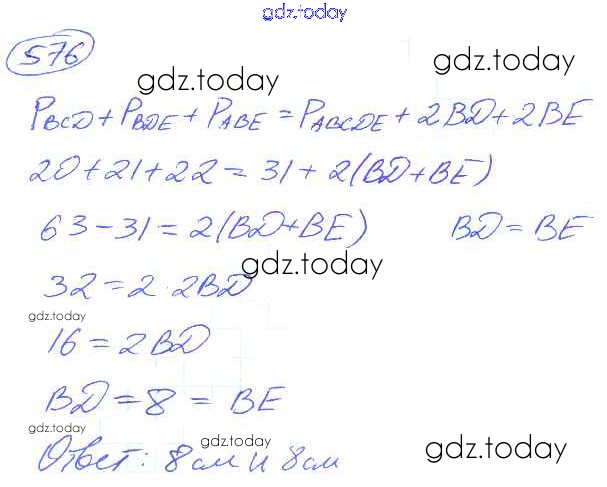 gdz.today
576
gdz.today
gdz.today
P_BCD + P_BDE + P_ABE = P_ABCDE + 2BD + 2BE
20 + 21 + 22 = 31 + 2(BD + BE)
63 - 31 = 2(BD + BE) BD = BE
gdz.today
32 = 2 · 2BD
gdz.today
16 = 2BD
BD = 8 = BE
gdz.today
gdz.today
gdz.today
Ответ: 8 см и 8 см